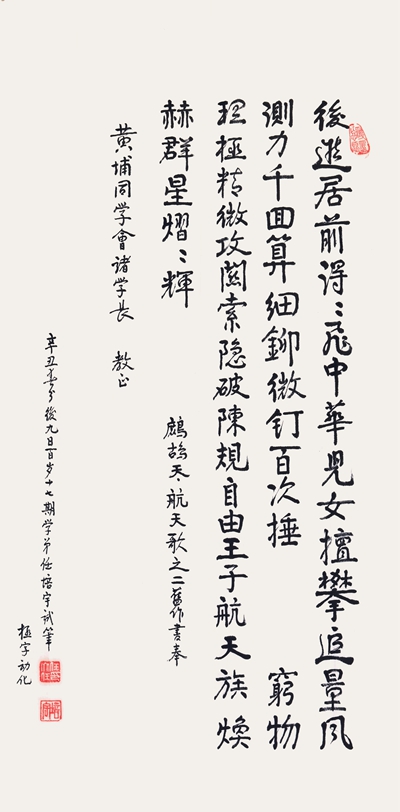 後進居前得〻飛中華児女擅攀追量风
測力千回算细鉚微钉百次捶　窮物
理極精微攻関索隐破陳規自由王子航天族焕
赫群星熠〻輝
鷓鴣天·航天歌之二舊作書奉
黄埔同学會诸学長　教正
辛丑春分後九日百岁十七期学弟任培宇试筆
極字动化